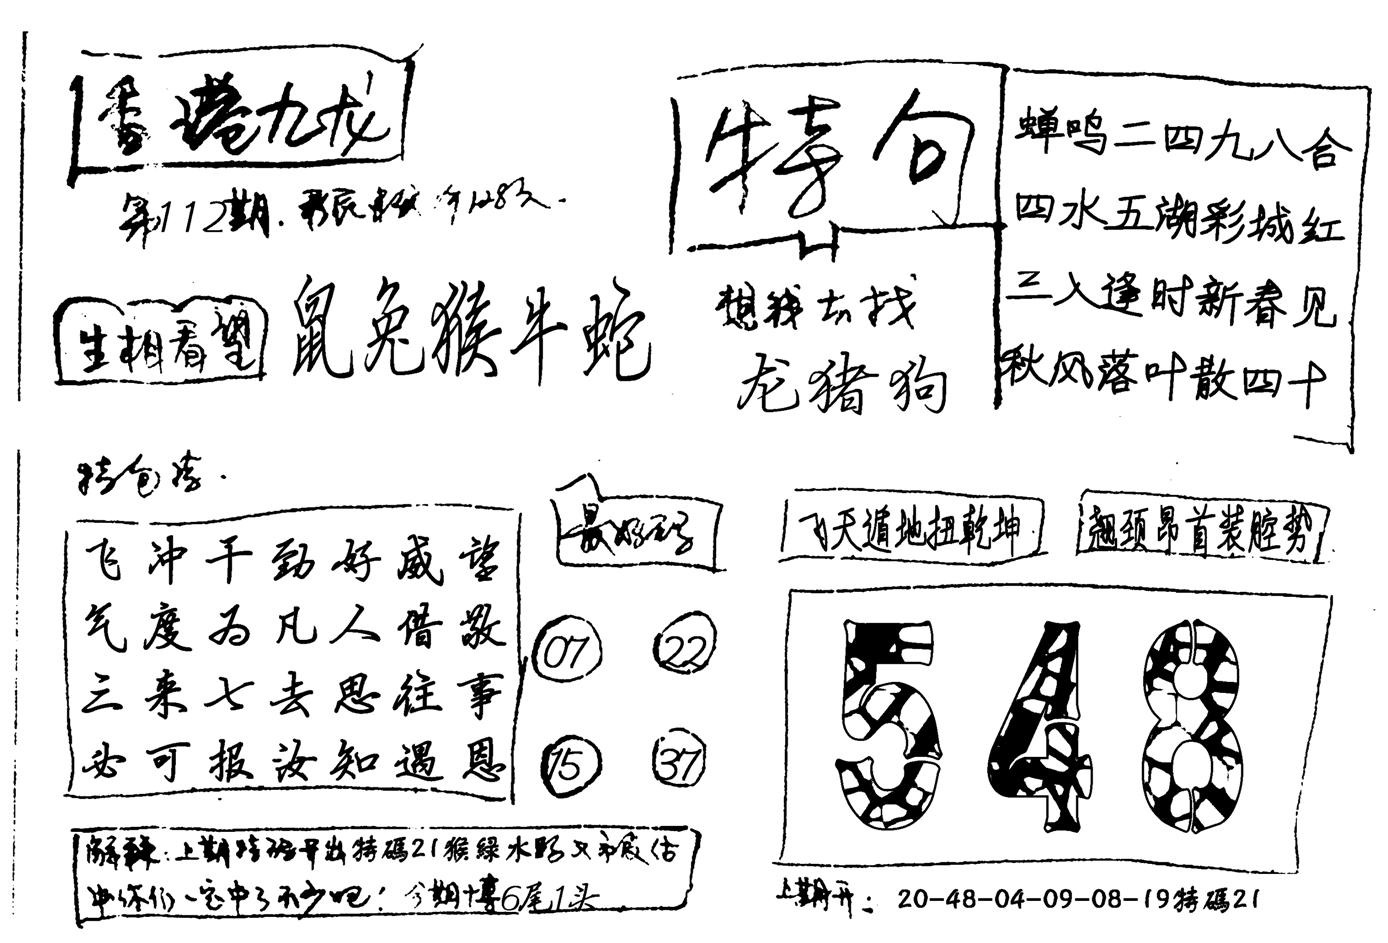 香港九龙
第112期.
生相看望
鼠兔猴牛蛇
特句
想我去找
龙猪狗
蝉鸣二四九八合
四水五湖彩城红
三入逢时新春见
秋风落叶散四十
飞冲干劲好威望
气度为凡人借敬
三来七去思往事
必可报汝知遇恩
最好
07 22
15 37
飞天遁地扭乾坤
翘颈昂首装腔势
548
上期特码开出特碼21猴綠水
中你们一定中了不少吧！今期博6尾1头
上期开：20-48-04-09-08-19特碼21